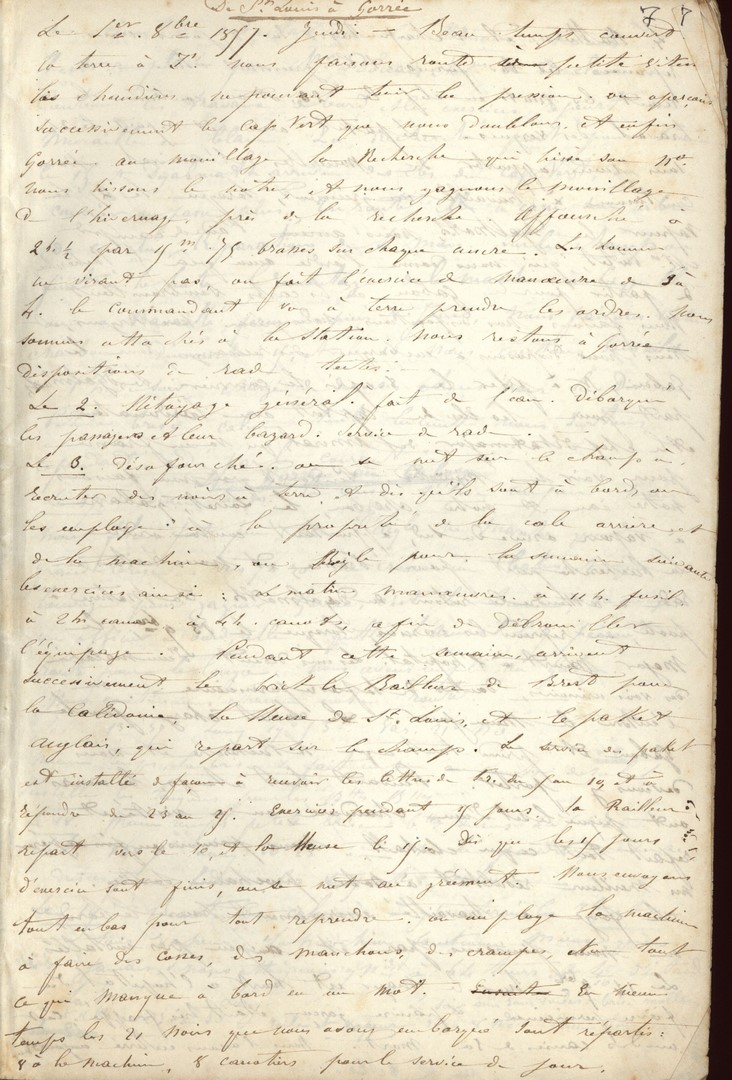 De St. Louis à Gorrée
7 7
Le 1er. 8bre 1857. Jeudi. — Beau temps couvert
la terre à Td. nous faisons route petite vitesse
les chaudières ne pouvant tenir la pression. on aperçoit
successivement le cap Vert que nous doublons, et enfin
Gorrée. au mouillage la Recherche qui hisse son no
nous hissons le nôtre, et nous gagnons le mouillage
de l'hivernage près de la recherche. Affourché à
2h. ½ par 15m. 75 brasses sur chaque ancre. Les hommes
ne virant pas, on fait l'exercice de manœuvre de 3 à
4. le commandant va à terre prendre les ordres. nous
sommes attachés à la Station. Nous restons à Gorrée
dispositions de rade tentes.
Le 2. Nétoyage général. fait de l'eau. Débarqué
les passagers et leur bazard. Service de rade.
Le 3. désaffourché. on se met sur le champ à
recruter des noirs à terre, et dès qu'ils sont à bord, on
les employe à la propreté de la cale arrière et
de la machine, on règle pour la semaine suivante
les exercices ainsi : Le matin manœuvres. à 11h. fusil
à 2h canon à 4h. canots, afin de débrouiller
l'équipage. Pendant cette semaine, arrivent
successivement le brick le Railleur de Brest pour
la Calédonie, la Meuse de St. Louis, et le paket
anglais, qui repart sur le champ. Le service du paket
est installé de façon à recevoir les lettres de du 5 au 10, et à
répondre du 23 au 25. Exercices pendant 15 jours. la Railleur
repart vers le 10, et la Meuse le 15. Dès que les 15 jours
d'exercice sont finis, on se met au gréement. Nous envoyons
tout en bas pour tout reprendre. on employe la machine
à faire des cosses, des manchons, des crampes, tout
ce qui manque à bord en un mot. Ensuite En même
temps les 21 noirs que nous avons embarqués sont répartis :
8 à la machine, 8 canotiers pour le service de jour,